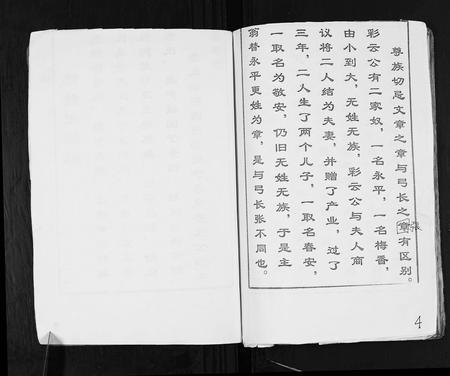 尊族切忌文章之章与弓长之章有区别。
張
彩云公有二家奴，一名永平，一名梅香，
由小到大，无姓无族，彩云公与夫人商
议将二人结为夫妻，并赠了产业，过了
三年，二人生了两个儿子，一取名春安，
一取名为敬安，仍旧无姓无族，于是主
翁替永平更姓为章，是与弓长张不同也。
4